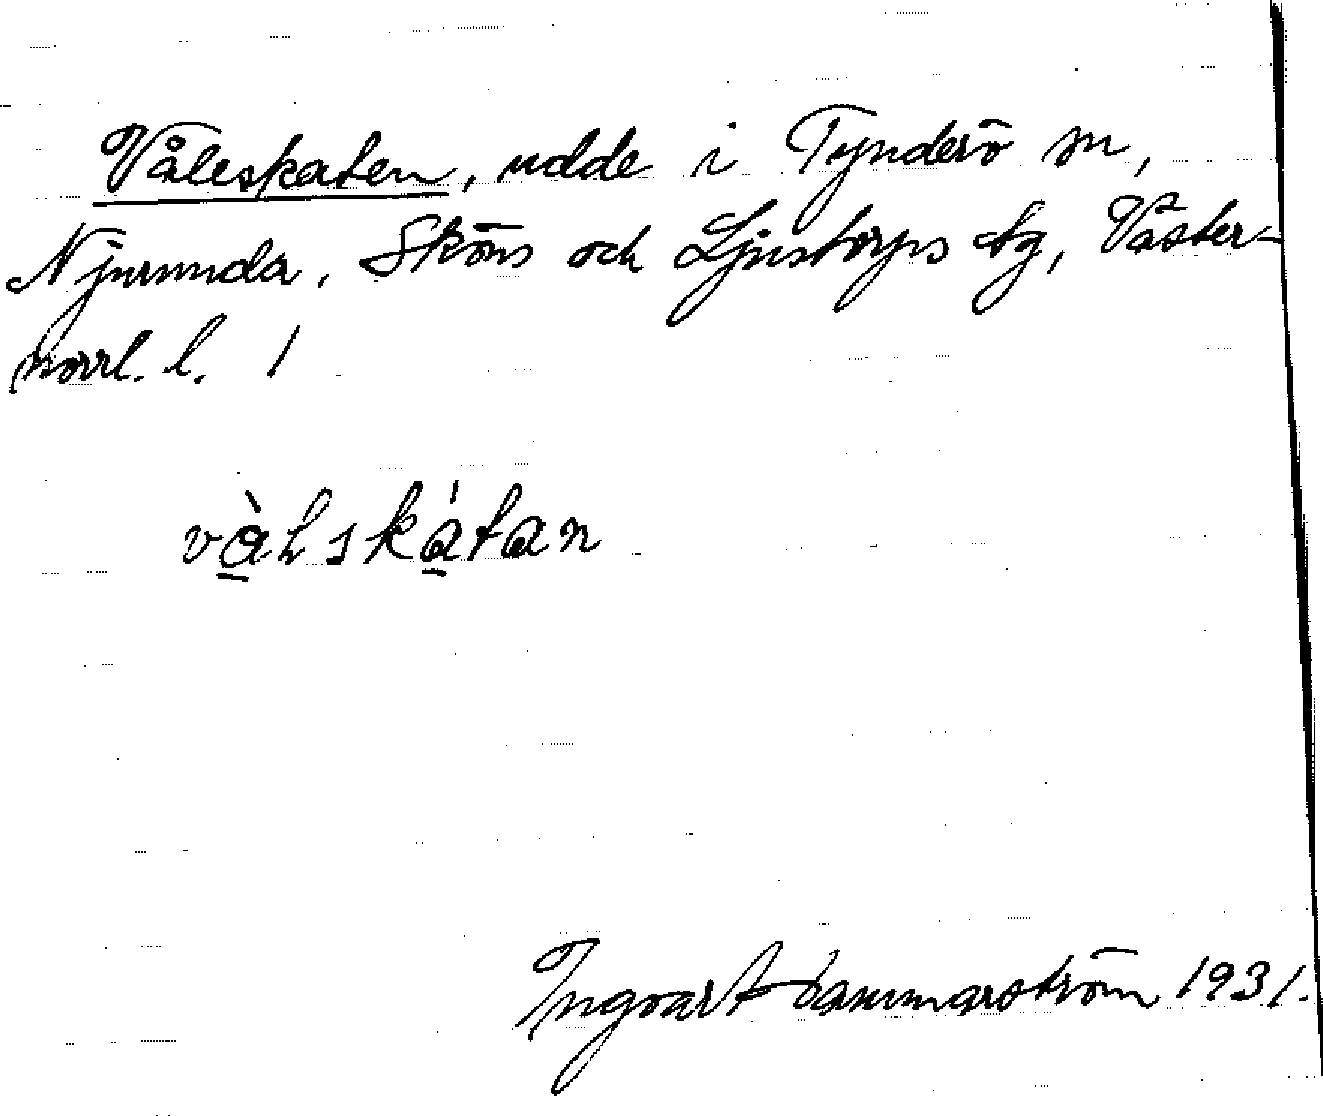 Våleskaten, udde i Tynderö sn,
Njurunda, Sköns och Ljustorps tg, Väster-
norrl. l. 1
vàlskátan
Ingvart Hammarström 1931.